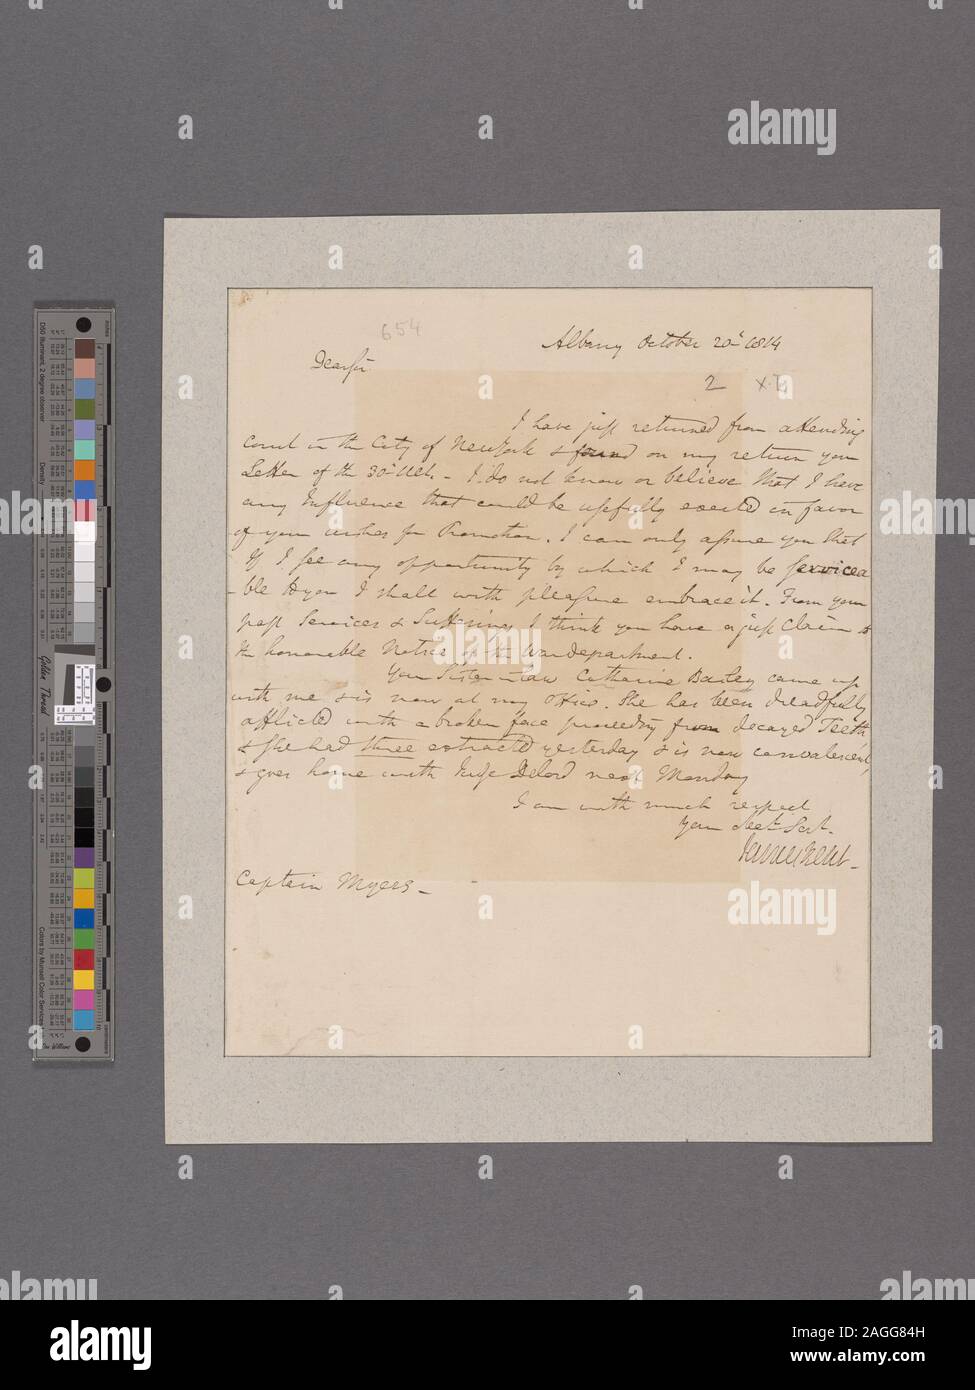 654
Albany October 20th 1814
Dear Sir
2 X.I.
I have just returned from attending
Court in the City of New York & found on my return your
Letter of the 30th Ult. - I do not know or believe that I have
any Influence that could be usefully exerted in favor
of your wishes for Promotion. I can only assure you that
If I see any opportunity by which I may be servicea
-ble to you I shall with pleasure embrace it. From your
past Services & Sufferings I think you have a just Claim to
the honourable Notice of the War department.
Your Sister in Law Catharine Bailey came up
with me & is now at my Office. She has been dreadfully
afflicted with a broken face proceeding from decayed Teeth
& she had three extracted yesterday & is now convalescent,
& goes home with Judge Delord next Monday
I am with much respect
Your Obedt Servt.
James Kent -
Captain Myers -
D50 Illuminant, 2 degree observer
Density
Golden Thread
Colors by Munsell Color Services
inches
centimeters
alamy
Image ID: 2AGG84H
www.alamy.com